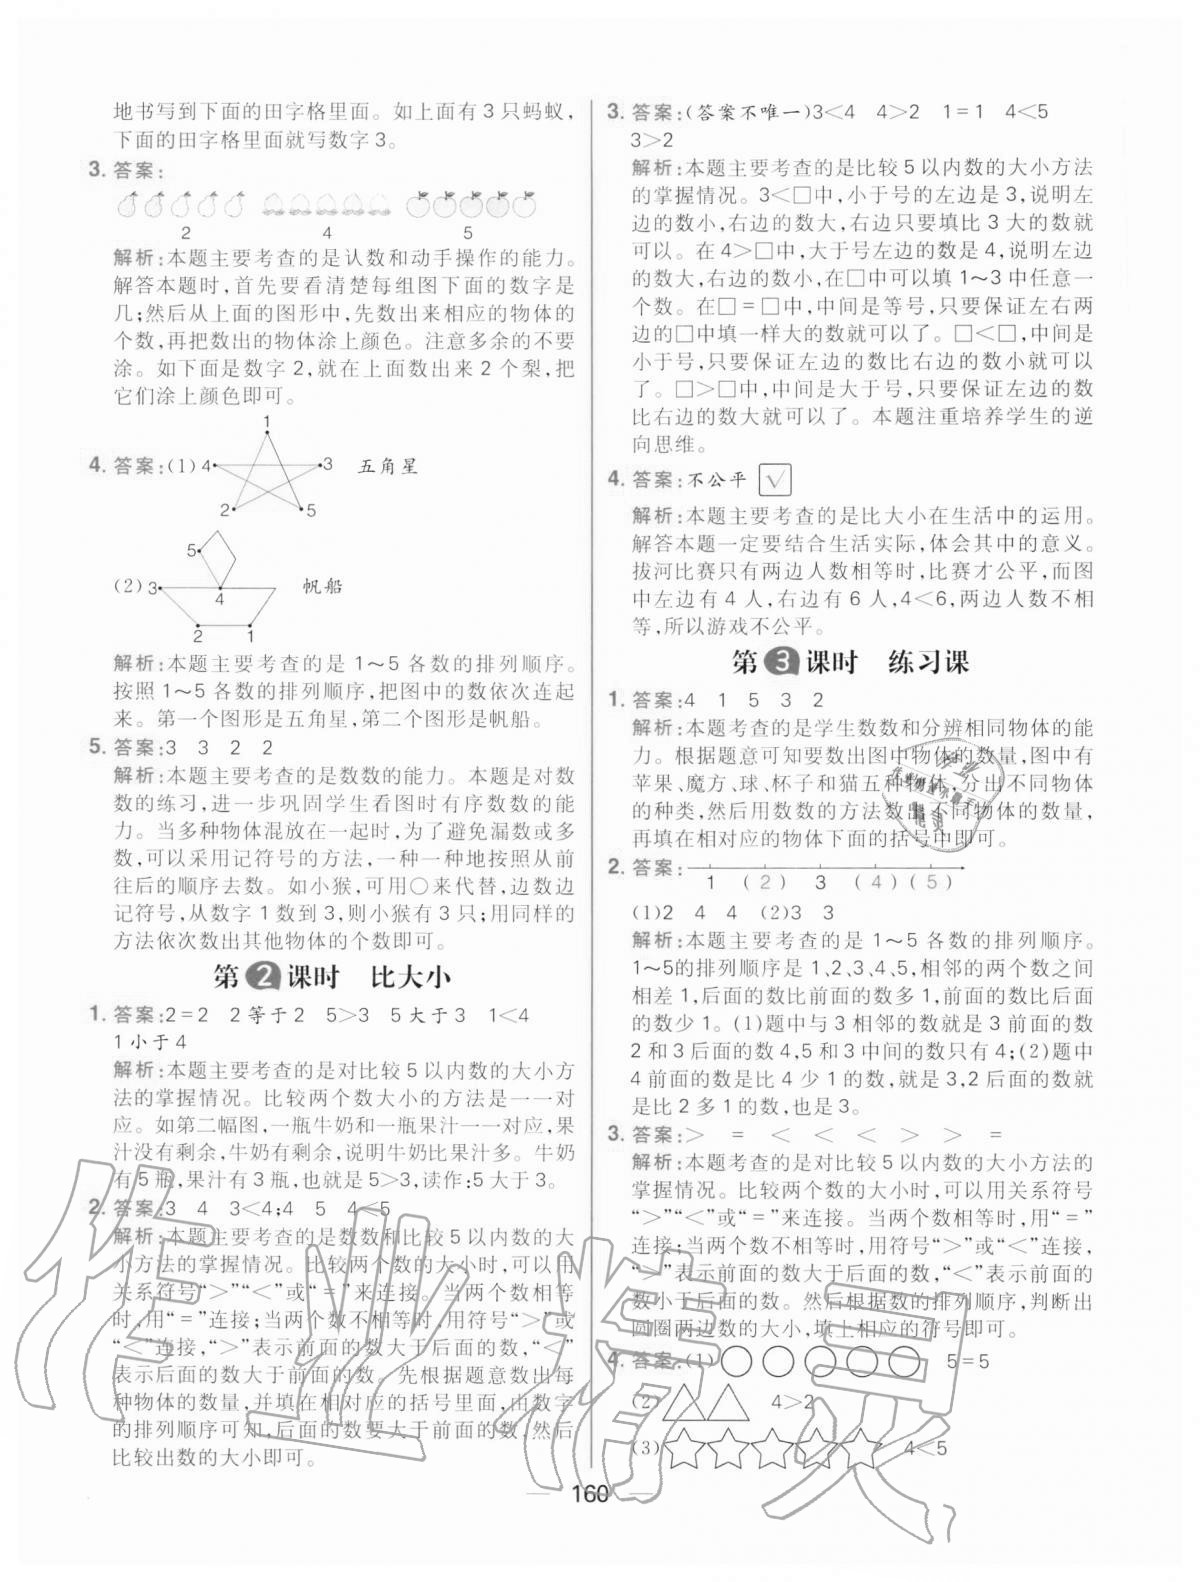 地书写到下面的田字格里面。如上面有3只蚂蚁,
下面的田字格里面就写数字3。
3. 答案:
2 4 5
解析:本题主要考查的是认数和动手操作的能力。
解答本题时,首先要看清楚每组图下面的数字是
几;然后从上面的图形中,先数出来相应的物体的
个数,再把数出的物体涂上颜色。注意多余的不要
涂。如下面是数字2,就在上面数出来2个梨,把
它们涂上颜色即可。
1
4. 答案:(1)4 3 五角星
2 5
5
(2) 3 4 帆船
2 1
解析:本题主要考查的是1~5各数的排列顺序。
按照1~5各数的排列顺序,把图中的数依次连起
来。第一个图形是五角星,第二个图形是帆船。
5. 答案:3 3 2 2
解析:本题主要考查的是数数的能力。本题是对数
数的练习,进一步巩固学生看图时有序数数的能
力。当多种物体混放在一起时,为了避免漏数或多
数,可以采用记符号的方法,一种一种地按照从前
往后的顺序去数。如小猴,可用○来代替,边数边
记符号,从数字1数到3,则小猴有3只;用同样的
方法依次数出其他物体的个数即可。
第2课时 比大小
1. 答案:2=2 2等于2 5>3 5大于3 1<4
1小于4
解析:本题主要考查的是对比较5以内数的大小方
法的掌握情况。比较两个数大小的方法是一一对
应。如第二幅图,一瓶牛奶和一瓶果汁一一对应,果
汁没有剩余,牛奶有剩余,说明牛奶比果汁多。牛奶
有5瓶,果汁有3瓶,也就是5>3,读作:5大于3。
2. 答案:3 4 3<4;4 5 4<5
解析:本题主要考查的是数数和比较5以内数的大
小方法的掌握情况。比较两个数的大小时,可以用
关系符号“>”“<”或“=”来连接。当两个数相等
时,用“=”连接;当两个数不相等时,用符号“>”或
“<”连接,“>”表示前面的数大于后面的数,“<”
表示后面的数大于前面的数。先根据题意数出每
种物体的数量,并填在相对应的括号里面,由数字
的排列顺序可知,后面的数要大于前面的数,然后
比较出数的大小即可。
3. 答案:(答案不唯一)3<4 4>2 1=1 4<5
3>2
解析:本题主要考查的是比较5以内数的大小方法
的掌握情况。3<□中,小于号的左边是3,说明左
边的数小,右边的数大,右边只要填比3大的数就
可以。在4>□中,大于号左边的数是4,说明左边
的数大,右边的数小,在□中可以填1~3中任意一
个数。在□=□中,中间是等号,只要保证左右两
边的□中填一样大的数就可以了。□<□,中间是
小于号,只要保证左边的数比右边的数小就可以
了。□>□中,中间是大于号,只要保证左边的数
比右边的数大就可以了。本题注重培养学生的逆
向思维。
4. 答案:不公平 √
解析:本题主要考查的是比大小在生活中的运用。
解答本题一定要结合生活实际,体会其中的意义。
拔河比赛只有两边人数相等时,比赛才公平,而图
中左边有4人,右边有6人,4<6,两边人数不相
等,所以游戏不公平。
第3课时 练习课
1. 答案:4 1 5 3 2
解析:本题考查的是学生数数和分辨相同物体的能
力。根据题意可知要数出图中物体的数量,图中有
苹果、魔方、球、杯子和猫五种物体,分出不同物体
的种类,然后用数数的方法数出不同物体的数量,
再填在相对应的物体下面的括号中即可。
2. 答案:
1 (2) 3 (4) (5)
(1)2 4 4 (2)3 3
解析:本题主要考查的是1~5各数的排列顺序。
1~5的排列顺序是1、2、3、4、5,相邻的两个数之间
相差1,后面的数比前面的数多1,前面的数比后面
的数少1。(1)题中与3相邻的数就是3前面的数
2和3后面的数4,5和3中间的数只有4;(2)题中
4前面的数是比4少1的数,就是3,2后面的数就
是比2多1的数,也是3。
3. 答案:> = < < < > > =
解析:本题考查的是对比较5以内数的大小方法的
掌握情况。比较两个数的大小时,可以用关系符号
“>”“<”或“=”来连接。当两个数相等时,用“=”
连接;当两个数不相等时,用符号“>”或“<”连接,
“>”表示前面的数大于后面的数,“<”表示前面的
数小于后面的数。然后根据数的排列顺序,判断出
圆圈两边数的大小,填上相应的符号即可。
4. 答案:(1)○○○○○ 5=5
(2)△△ 4>2
(3)☆☆☆☆☆ 4<5
160
作业精灵